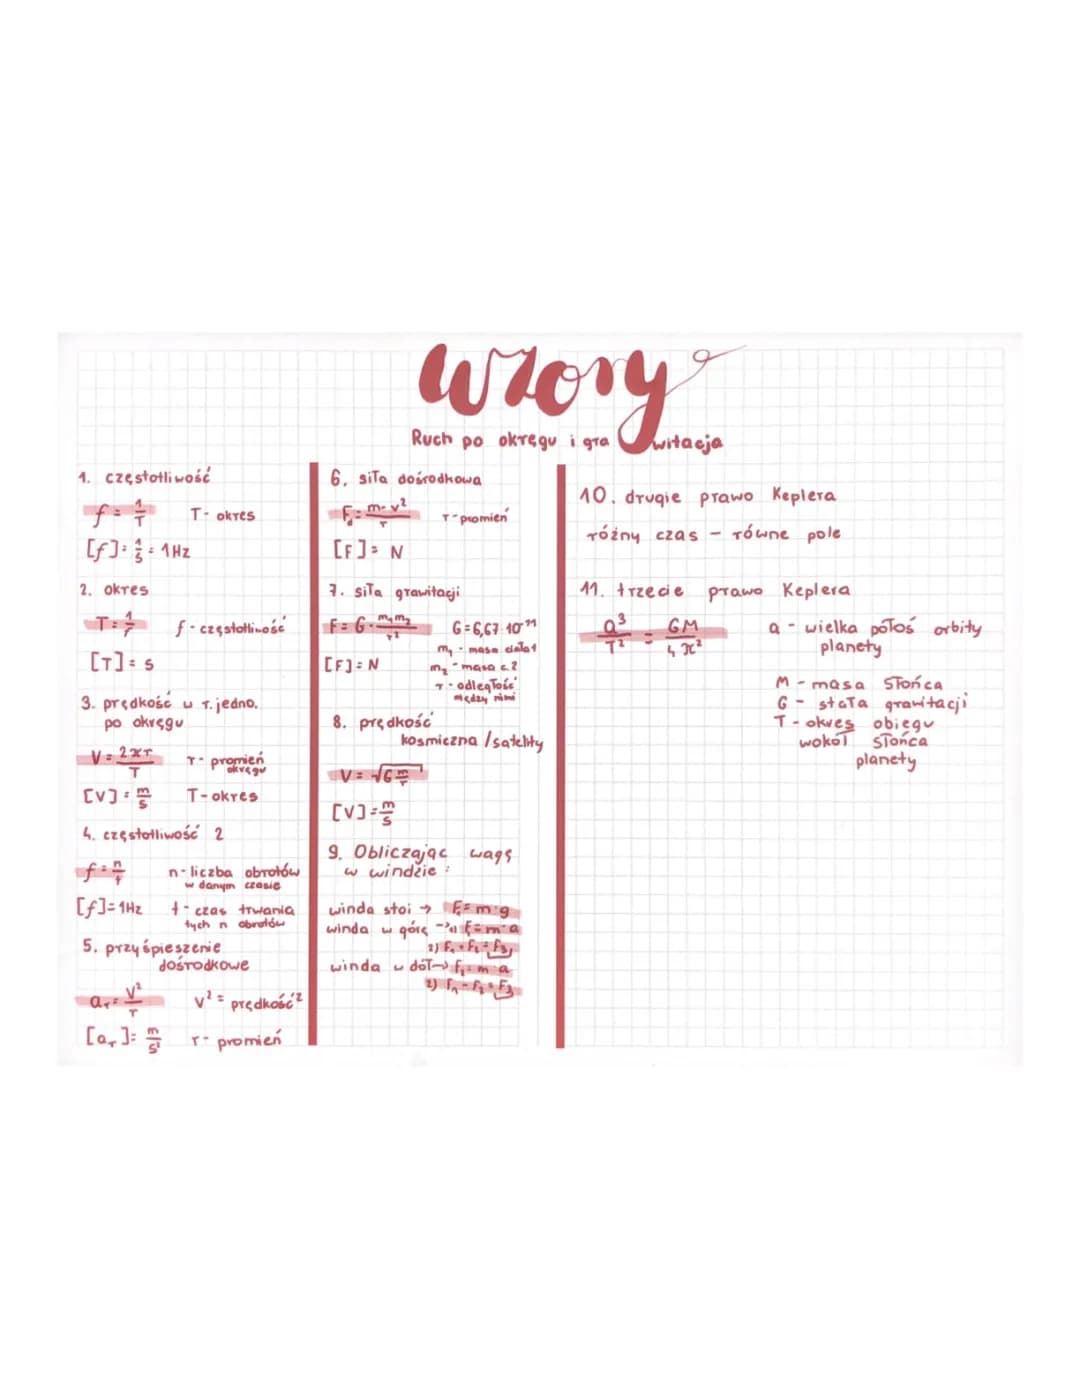 Wzory
Ruch po okręgu i grawitacja
1. częstotliwość
f = 1/T T - okres
[f] = 1/s = 1Hz
2. okres
T = 1/f f - częstotliwość
[T] = s
3. prędkość w r. jedno.
po okręgu
V = 2πr/T r - promień okręgu
[V] = m/s T - okres
4. częstotliwość 2
f = n/t n - liczba obrotów
w danym czasie
[f] = 1Hz t - czas trwania
tych n obrotów
5. przyśpieszenie
dośrodkowe
a_r = V²/r V² = prędkość²
[a_r] = m/s² r - promień
6. siła dośrodkowa
F_d = m·v²/r r - promień
[F] = N
7. siła grawitacji
F = G · m₁m₂/r² G = 6,67·10⁻¹¹
m₁ - masa ciała 1
[F] = N m₂ - masa c. 2
r - odległość
między nimi
8. prędkość
kosmiczna / satelity
V = √(G m/r)
[V] = m/s
9. Obliczając wagę
w windzie:
winda stoi → F₁ = m·g
winda w górę → 1) F = m·a
2) F₁ + F₂ = F₃
winda w dół → F₂ = m·a
2) F₁ - F₂ = F₃
10. drugie prawo Keplera
różny czas - równe pole
11. trzecie prawo Keplera
a³/T² = GM/4π² a - wielka półoś orbity
planety
M - masa Słońca
G - stała grawitacji
T - okres obiegu
wokół Słońca
planety